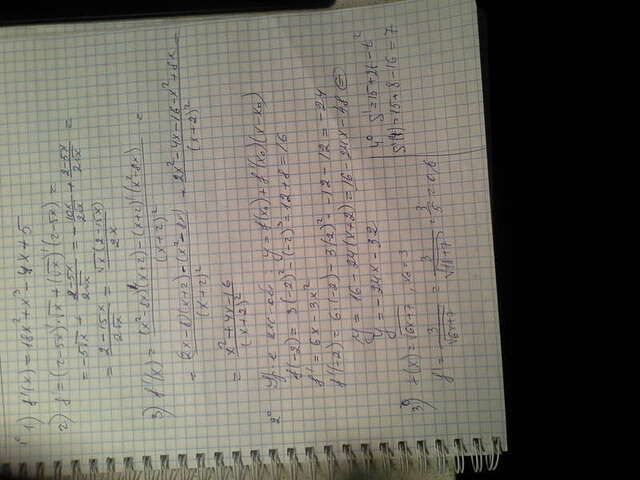 1) f'(x) = 18x + x³ - 4x + 5
2) f' = (2-5x)'·√x + (√x)'(2-5x) =
= -5√x + (2-5x)/(2√x) = -10x/(2√x) + (2-5x)/(2√x) =
= (2-15x)/(2√x) = √x(2-15x)/(2x)
3) f'(x) = ((x²-8x)'(x+2) - (x+2)'(x²-8x))/(x+2)² =
= ((2x-8)(x+2) - (x²-8x))/(x+2)² = (2x²-4x-16-x²+8x)/(x+2)² =
= (x²+4x-16)/(x+2)²
2° y = f(x₀) + f'(x₀)(x-x₀)
f(-2) = 3(-2)² - (-2)³ = 12+8 = 16
f' = 6x - 3x²
f'(-2) = 6(-2) - 3(2)² = -12-12 = -24
y = 16-24(x+2) = 16-24x-48 =
y = -24x-32
3° f(x) = √(6x+7), x₀ = 3
f' = 3/√(6x+7) = 3/√(18+7) = 3/5 = 0,6
4° S = 15+2t-t²
S(4) = 15+8-16 = 7